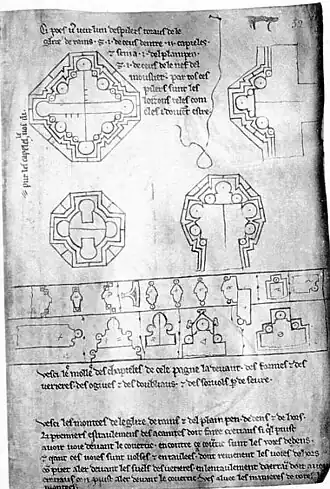 Ci poes vs veir lun des pilers toraus de le
glize de rains . & . i . de ceus dentre . ii . capieles
& sen i a . i . del plain pen .
& . i . de ceus de le nef del
moustier . par tos ces
pilers sunt les
loizons teles com
eles i doivent estre .
Vesci les molles des chapieles de cele pagne la devant . des formes & des
verieres . des ogives & des doubliaus . & des sorvols p deseure .
Vesci les montees de le glize de rains & del plain pen . dedens & dehors .
li premiers estaulemens des acaintes doit faire creteaus si ql puist
avoir voie devant le covertic . encontre ce covertic sunt les voies dedens .
& quant ces voies sunt volses & entaulees . dont revienent les voies dehors
com puet aler devant les suels des verrieres . en lentaulement daerrain doit avoir
creteaus con puist aler devant le covertic . ves ci les manieres de totes